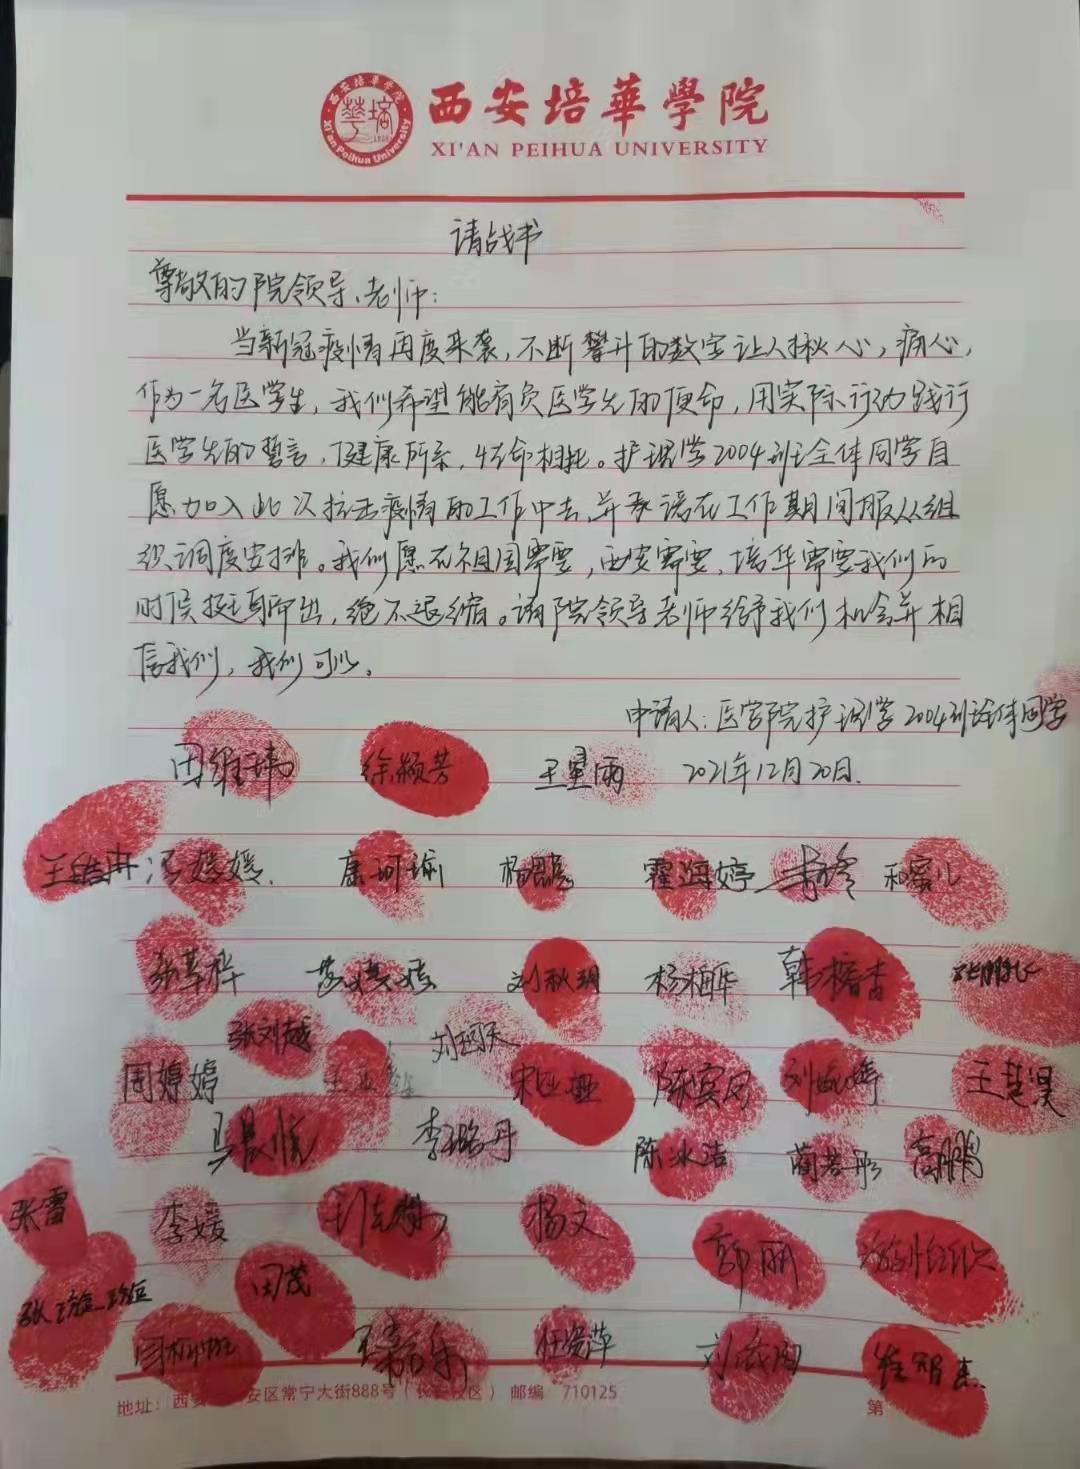 西安培華學院
XI'AN PEIHUA UNIVERSITY
西安培華學院
Xi'an Peihua University
请战书
尊敬的院领导、老师：
当新冠疫情再度来袭，不断攀升的数字让人揪心，痛心，
作为一名医学生，我们希望能肩负医学生的使命，用实际行动践行
医学生的誓言，健康所系，性命相托。护理学2004班全体同学自
愿加入此次抗击疫情的工作中去，并承诺在工作期间服从组
织调度安排。我们愿在祖国需要，西安需要，培华需要我们的
时候挺身而出，绝不退缩。请院领导老师给予我们机会并相
信我们，我们可以。
申请人：医学院护理学2004班全体同学
田维玮 徐颖芳 王星雨 2021年12月20日.
冯媛媛. 康珂瑜 霍海婷
张莘桦 刘秋玥 杨柏华 韩椿杳
张刘越
周婷婷 宋亚娅 陈宾凤 王楚淏
马晨悦 李璐丹 陈冰洁 蔺若彤 高鹏
张雪 李媛 杨文 郭丽
田茂
王嘉乐 任婉萍 崔智杰
地址：西安 安区常宁大街888号（长安校区） 邮编 710125
第